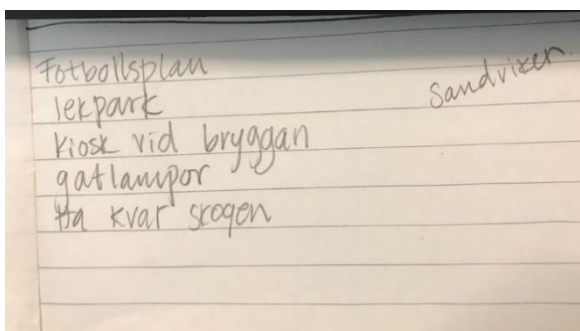 Fotbollsplan
lekpark
Sandviken
kiosk vid bryggan
gatlampor
Ha kvar skogen